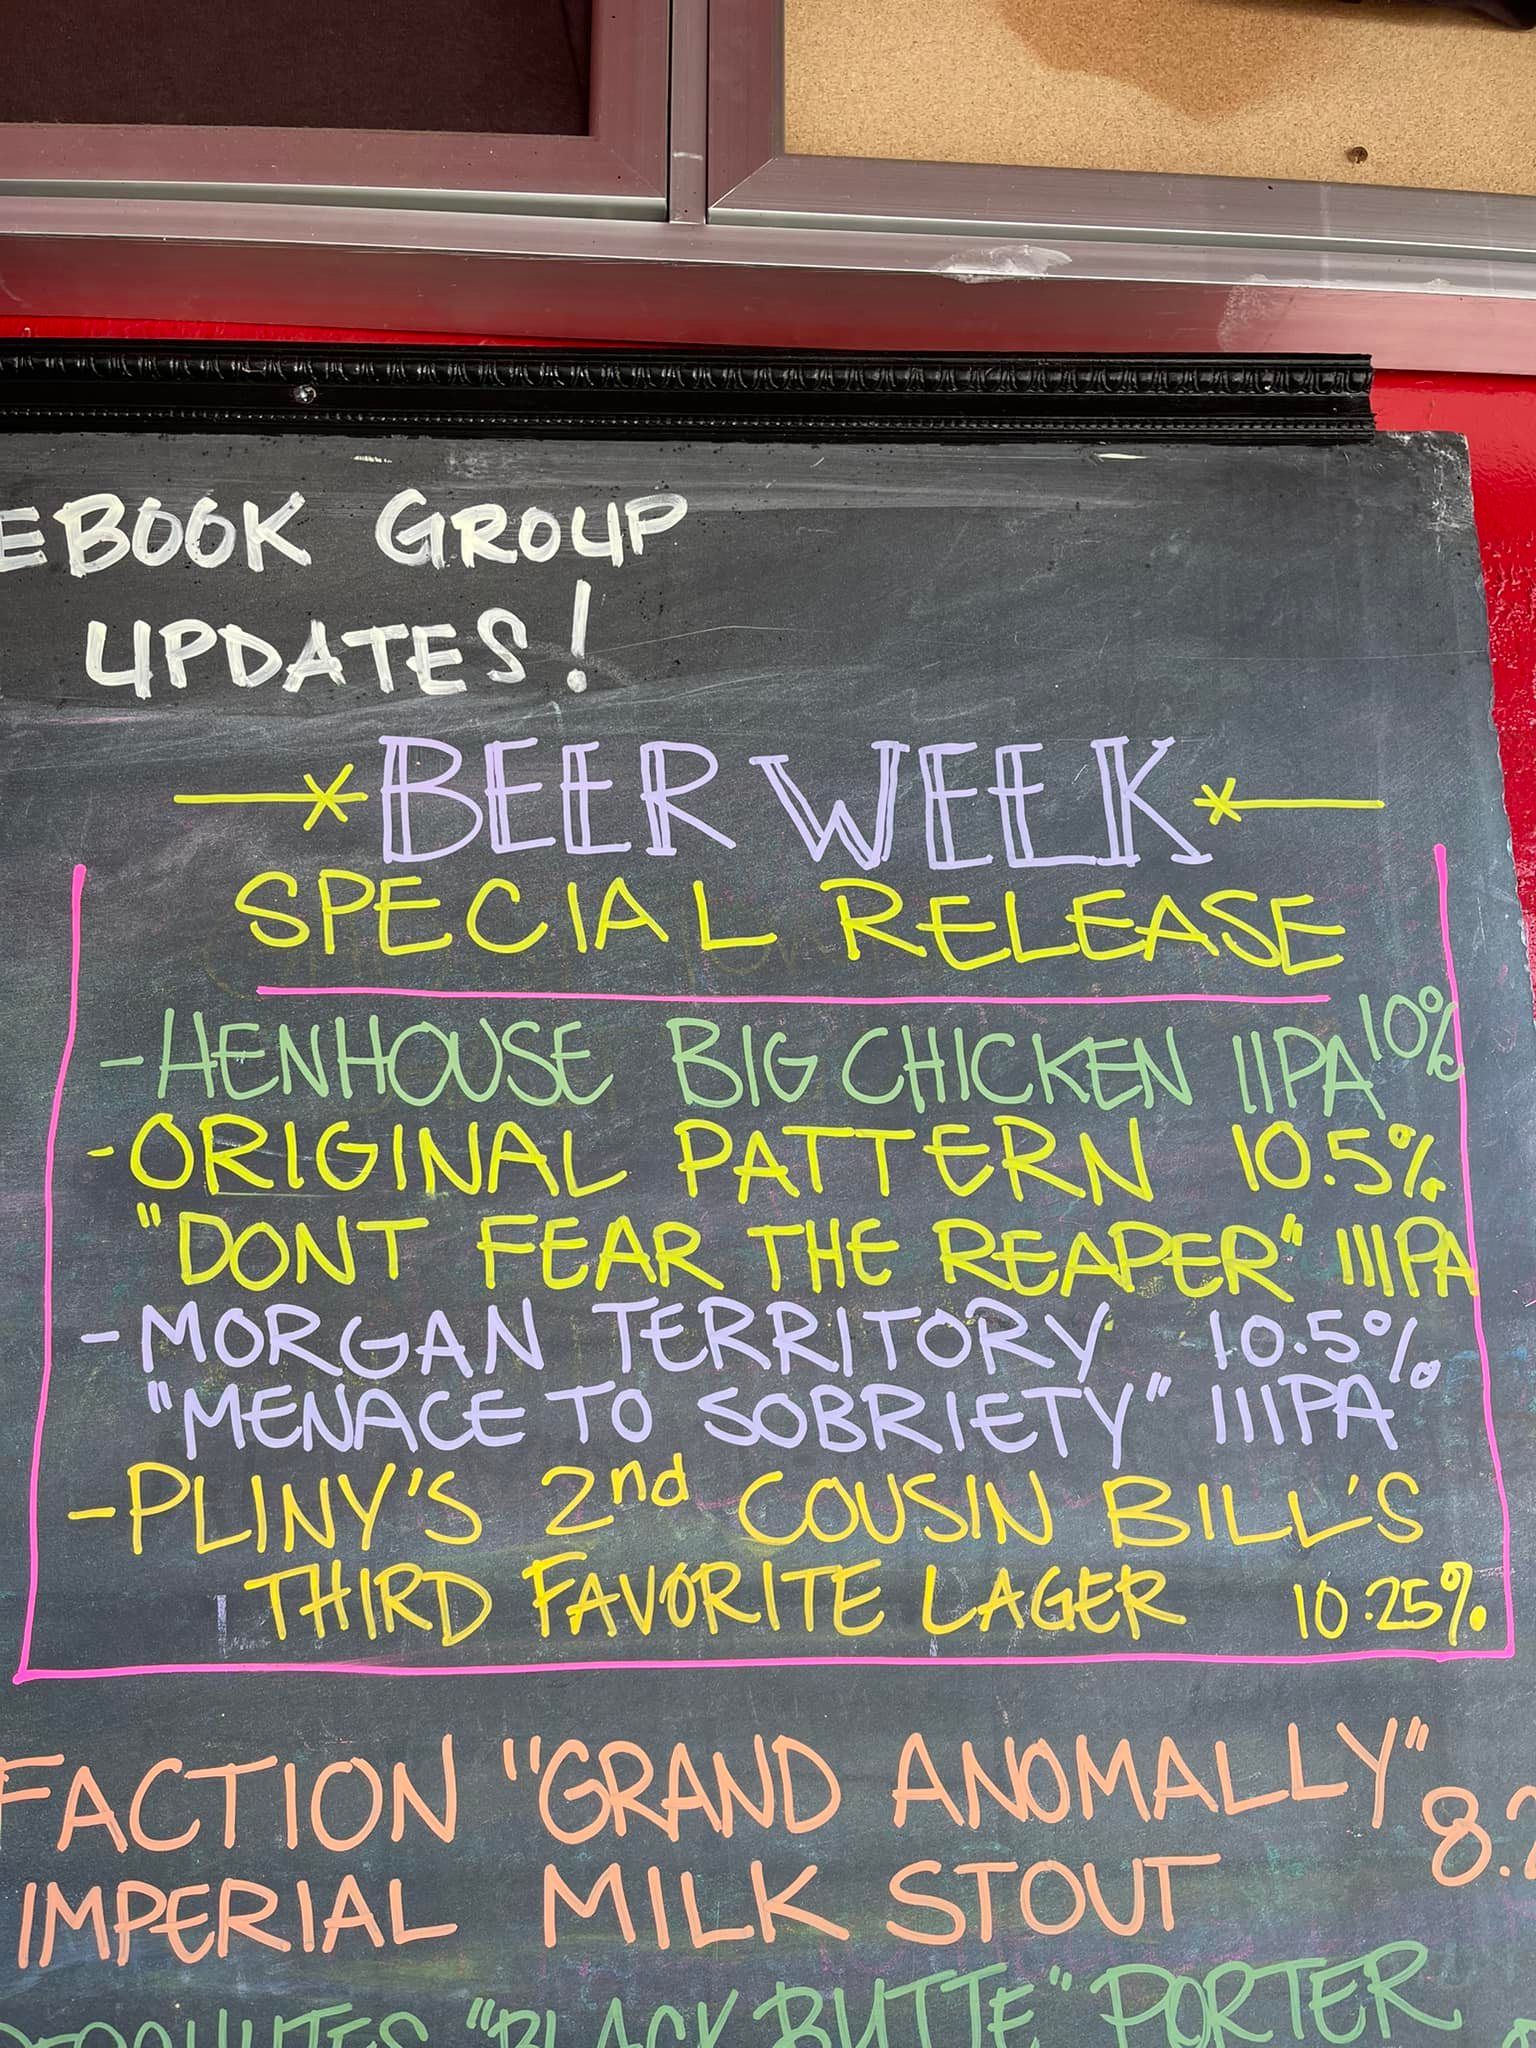 EBOOK GROUP
UPDATES!
BEER WEEK
SPECIAL RELEASE
-HENHOUSE BIG CHICKEN IIPA 10%
-ORIGINAL PATTERN 10.5%
"DONT FEAR THE REAPER" IIIPA
-MORGAN TERRITORY 10.5%
"MENACE TO SOBRIETY" IIIPA
-PLINY'S 2nd COUSIN BILL'S
THIRD FAVORITE LAGER 10.25%
FACTION "GRAND ANOMALLY" 8.2
IMPERIAL MILK STOUT
"BLACK BUTTE" PORTER